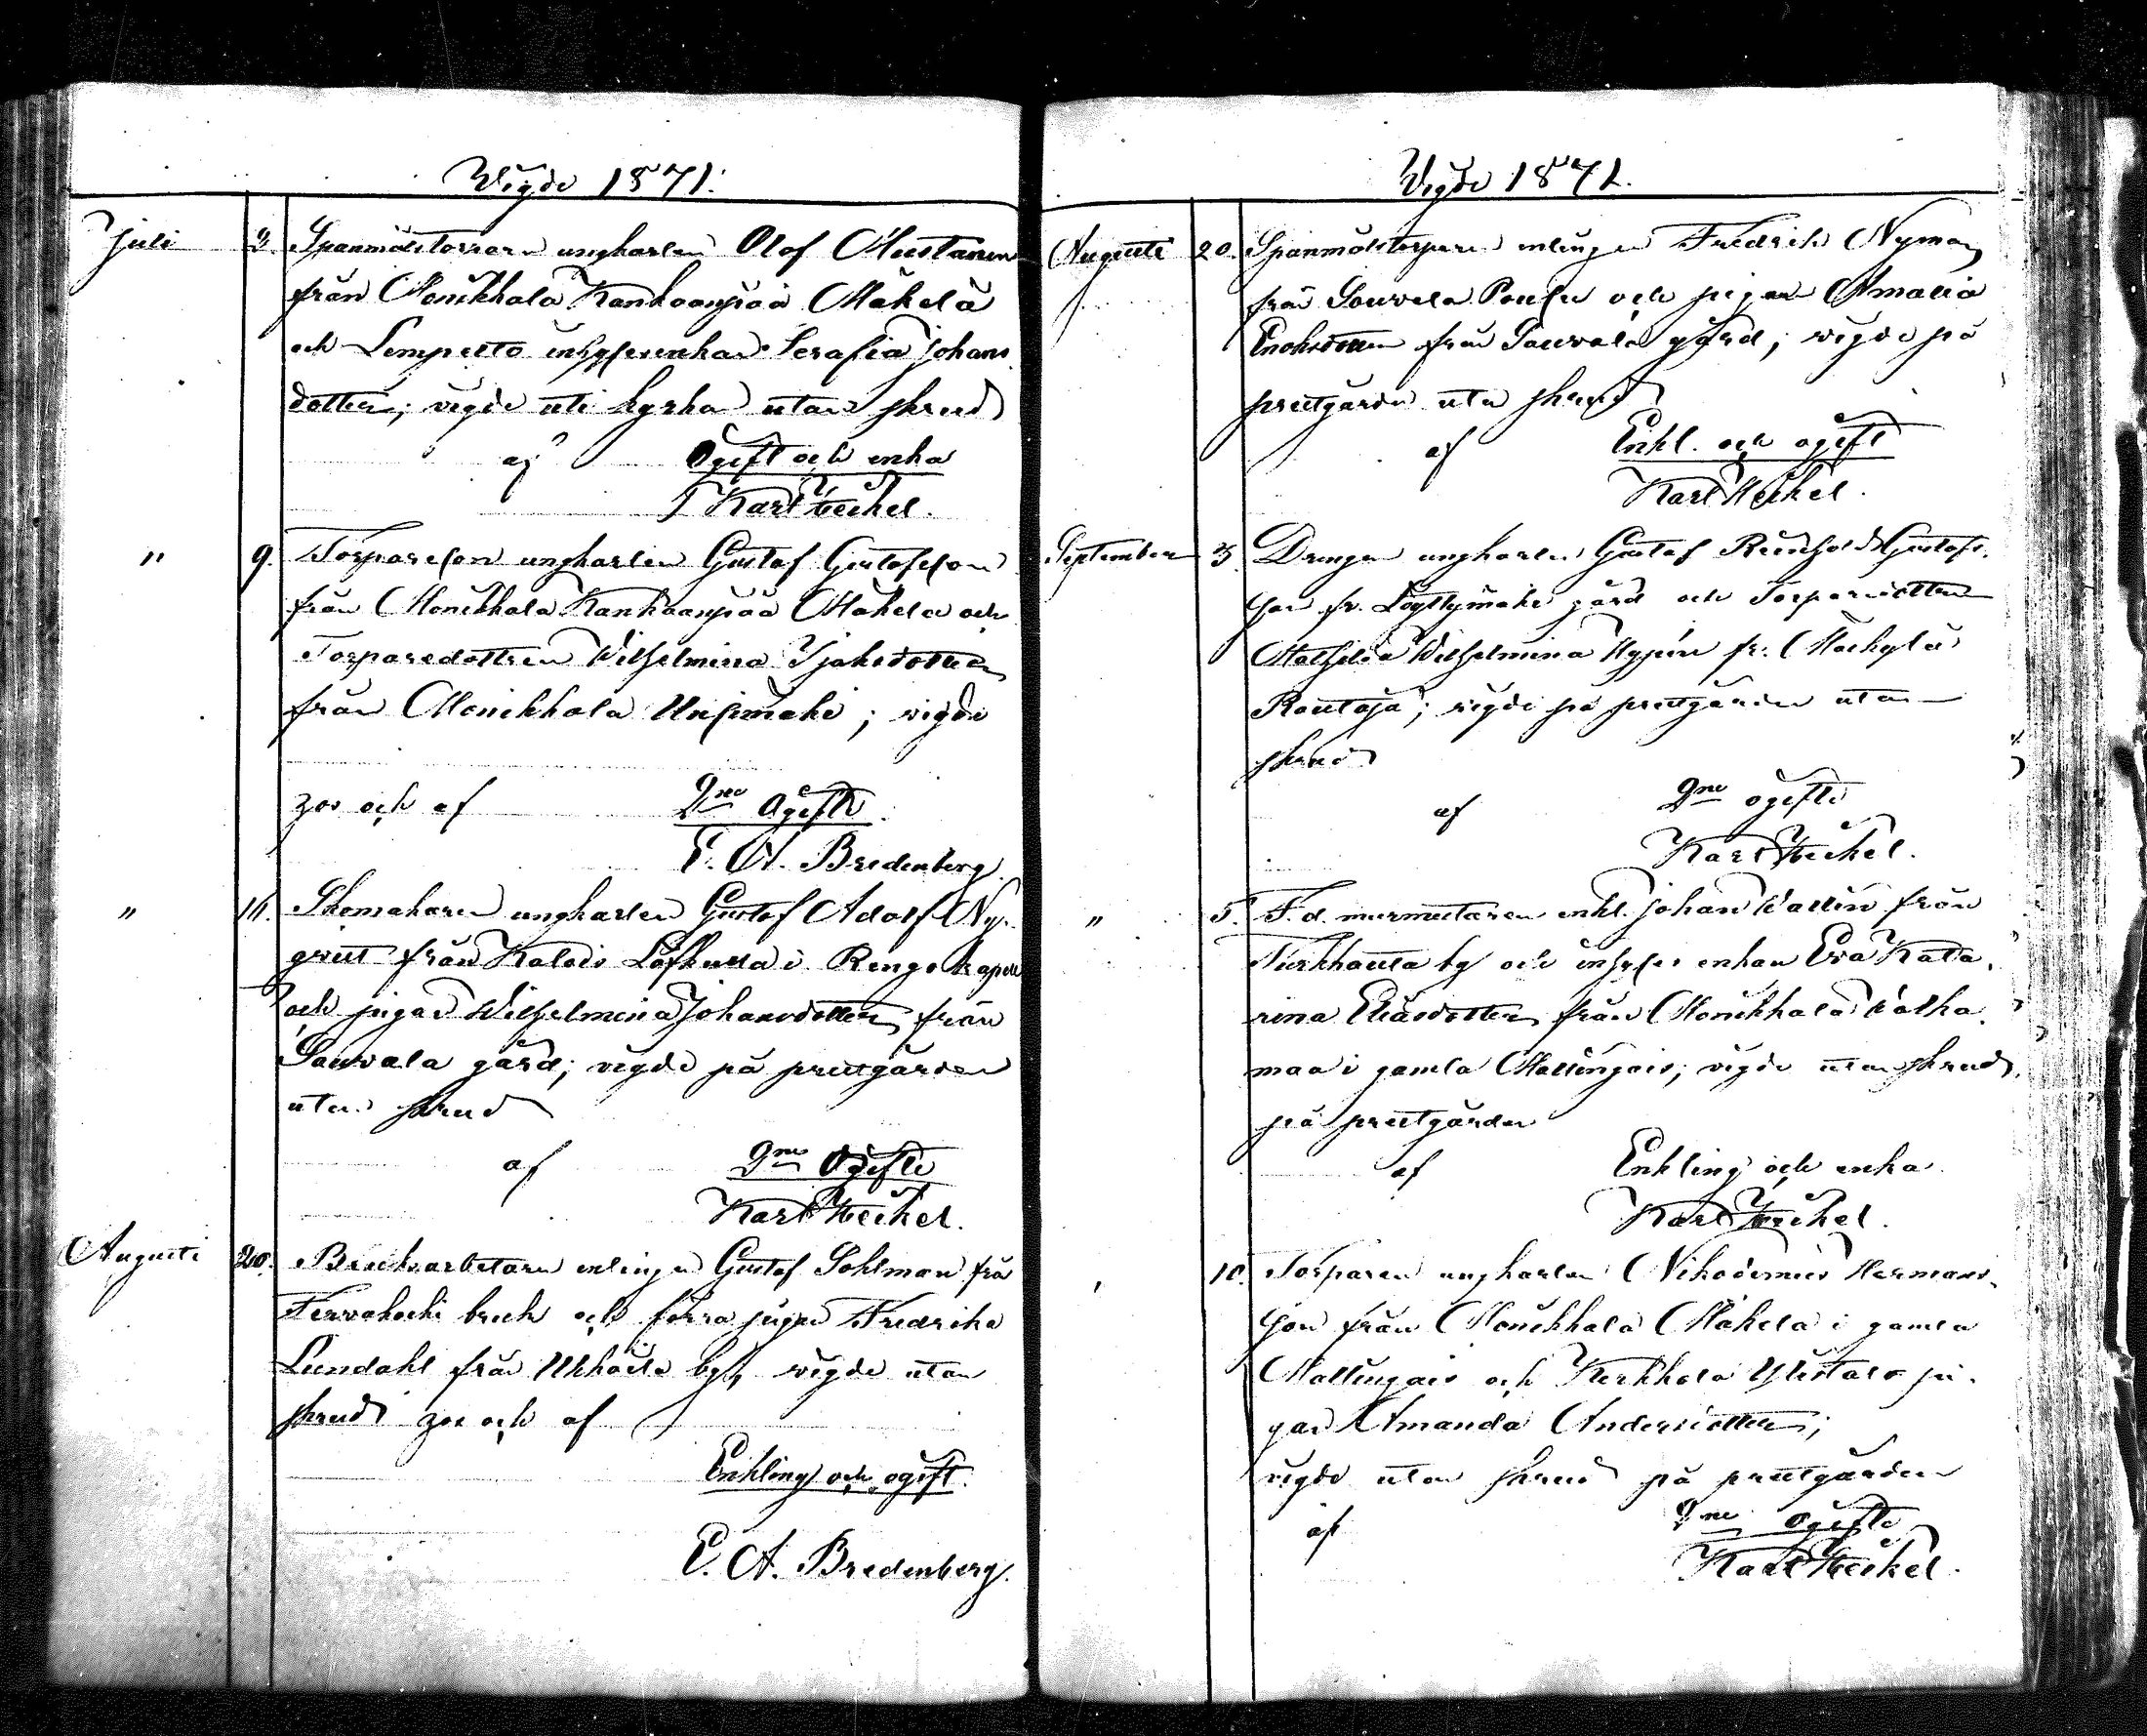 Vigde 1871.
Juli 3. Spanmålstorraren ungkarlen Olof Mustanen
från Monikkala Kankaanpää Mäkelä
och Lempeito inhysesenkan Serafia Johans
dotter; vigde uti kyrkan utan skrud
af Ogift och enka
Karl Heikel.
" 9. Torpareson ungkarlen Gustaf Gustafsson
från Monikkala Kankaanpää Mäkelä och
Torparedottren Wilhelmina Isaksdotter
från Monikkala Uusimäki; vigde
hos och af gne Ogifte
E. A. Bredenberg.
" 11. Skomakaren ungkarlen Gustaf Adolf Ny-
qvist från Kalois Löfkulla i Rengo kapell
och pigan Wilhelmina Johansdotter från
Sauvala gård; vigde på prestgården
utan skrud
af gne Ogifte
Karl Heikel.
Augusti 20. Bruksarbetaren enklingen Gustaf Sohlman frå
Tervakoski bruk och förra pigan Fredrika
Lundahl från Ukkoila by, vigde utan
skrud hos och af
Enkling och ogift.
E. A. Bredenberg.
Vigde 1871.
Augusti 20. Spanmålstorparen enklingen Fredrik Nyman
från Sauvala och pigan Amalia
Enoksdotter från Sauvala gård; vigde på
prestgården utan skrud
af Enkl. och ogift
Karl Heikel.
September 3. Drängen ungkarlen Gustaf Reinhold Gustafs-
son fr. Löyttymäki gård och Torparedottren
Mathilda Wilhelmina Hypén fr. Mäskylä
Rautoja; vigde på prestgården utan
skrud
af gne ogifte
Karl Heikel.
" 5. F. d. murmästaren enkl. Johan Wallin från
Turkhauta by och inhyses enkan Eva Kata-
rina Eliasdotter från Monikkala Valka-
maa i gamla Mallingais; vigde utan skrud
på prestgården
af Enkling och enka
Karl Heikel.
" 10. Torparen ungkarlen Nikodemus Hermans-
son från Monikkala Mäkelä i gamla
Mallingais och Kerkkola Ylistalo pi-
gan Amanda Andersdotter;
vigde utan skrud på prestgården
af gne Ogifte
Karl Heikel.